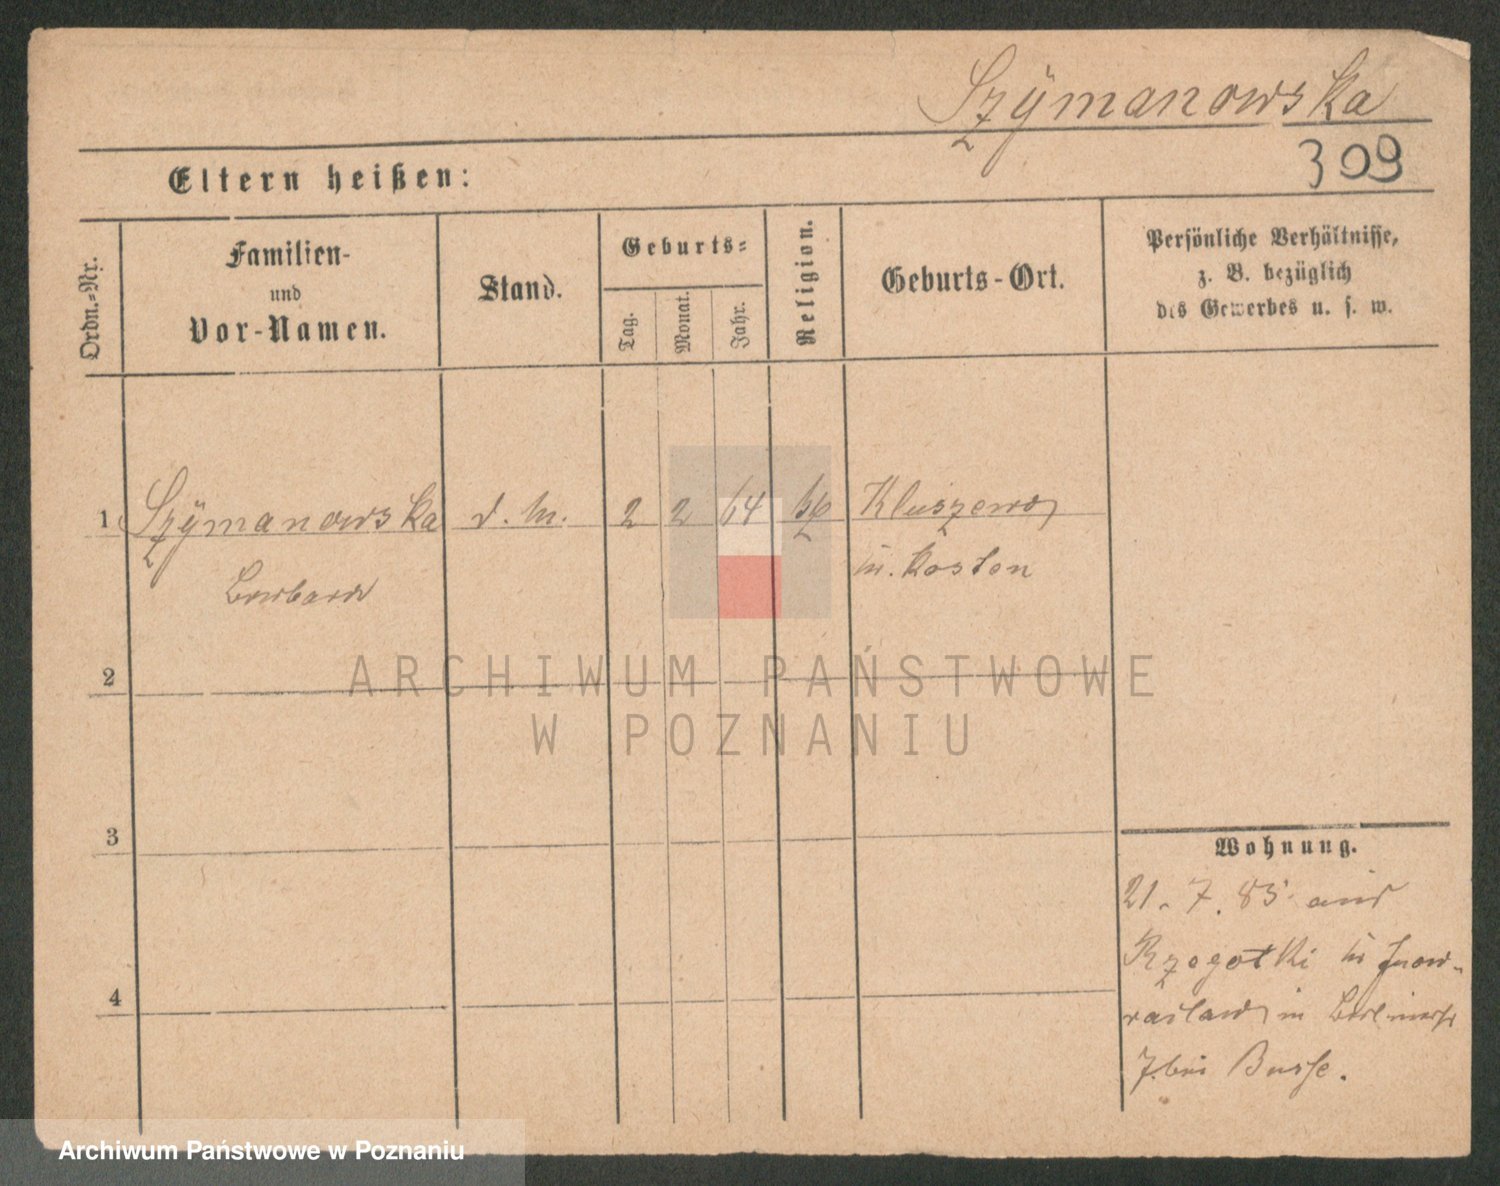 Szÿmanowska
309
Eltern heißen:
Ordn.-Nr.
Familien-
und
Vor-Namen.
Stand.
Geburts-
Tag.
Monat.
Jahr.
Religion.
Geburts-Ort.
Persönliche Verhältnisse,
z. B. bezüglich
des Gewerbes u. s. w.
1 Szÿmanowska d. M. 2 2 64 Kluszewo
Barbara Kosten
2
3
4
Wohnung.
21. 7. 85 aus
Rzegotki in Inow-
raclaw in Berlinerstr
7. bei Busse.
ARCHIWUM PAŃSTWOWE
W POZNANIU
Archiwum Państwowe w Poznaniu